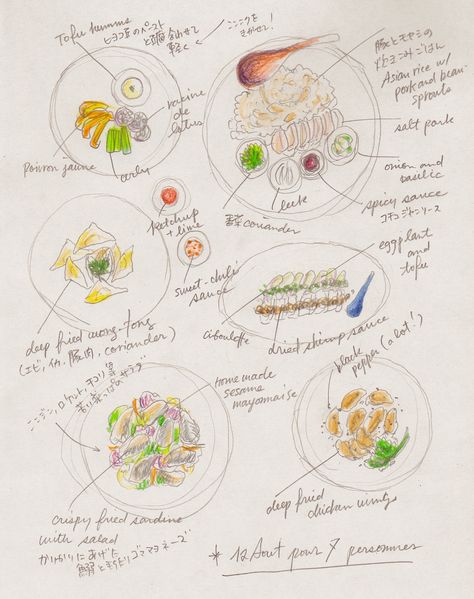 Tofu hummus
ヒヨコ豆のペースト
と豆腐合わせて
軽く
ニンニクを
きかせて!
racine
de
lotus
Poivron jaune
豚とモヤシの
炊きこみごはん
Asian rice w/
pork and bean-
sprouts
salt pork
onion and
basilic
spicy sauce
コチュジャンソース
leek
coriander
ketchup
+ lime
sweet-chili
sauce
eggplant
and
tofu
ciboulette
dried shrimp sauce
deep fried wong-tong
(エビ, イカ, 豚肉, coriander)
black
pepper (a lot!)
home made
sesame
mayonnaise
ニンジン, ロケット, チコリ等
サラダ
crispy fried sardine
with salad
かりかりにあげた
ゴママヨネーズ
deep fried
chicken wings
* 12 Août pour 7 personnes